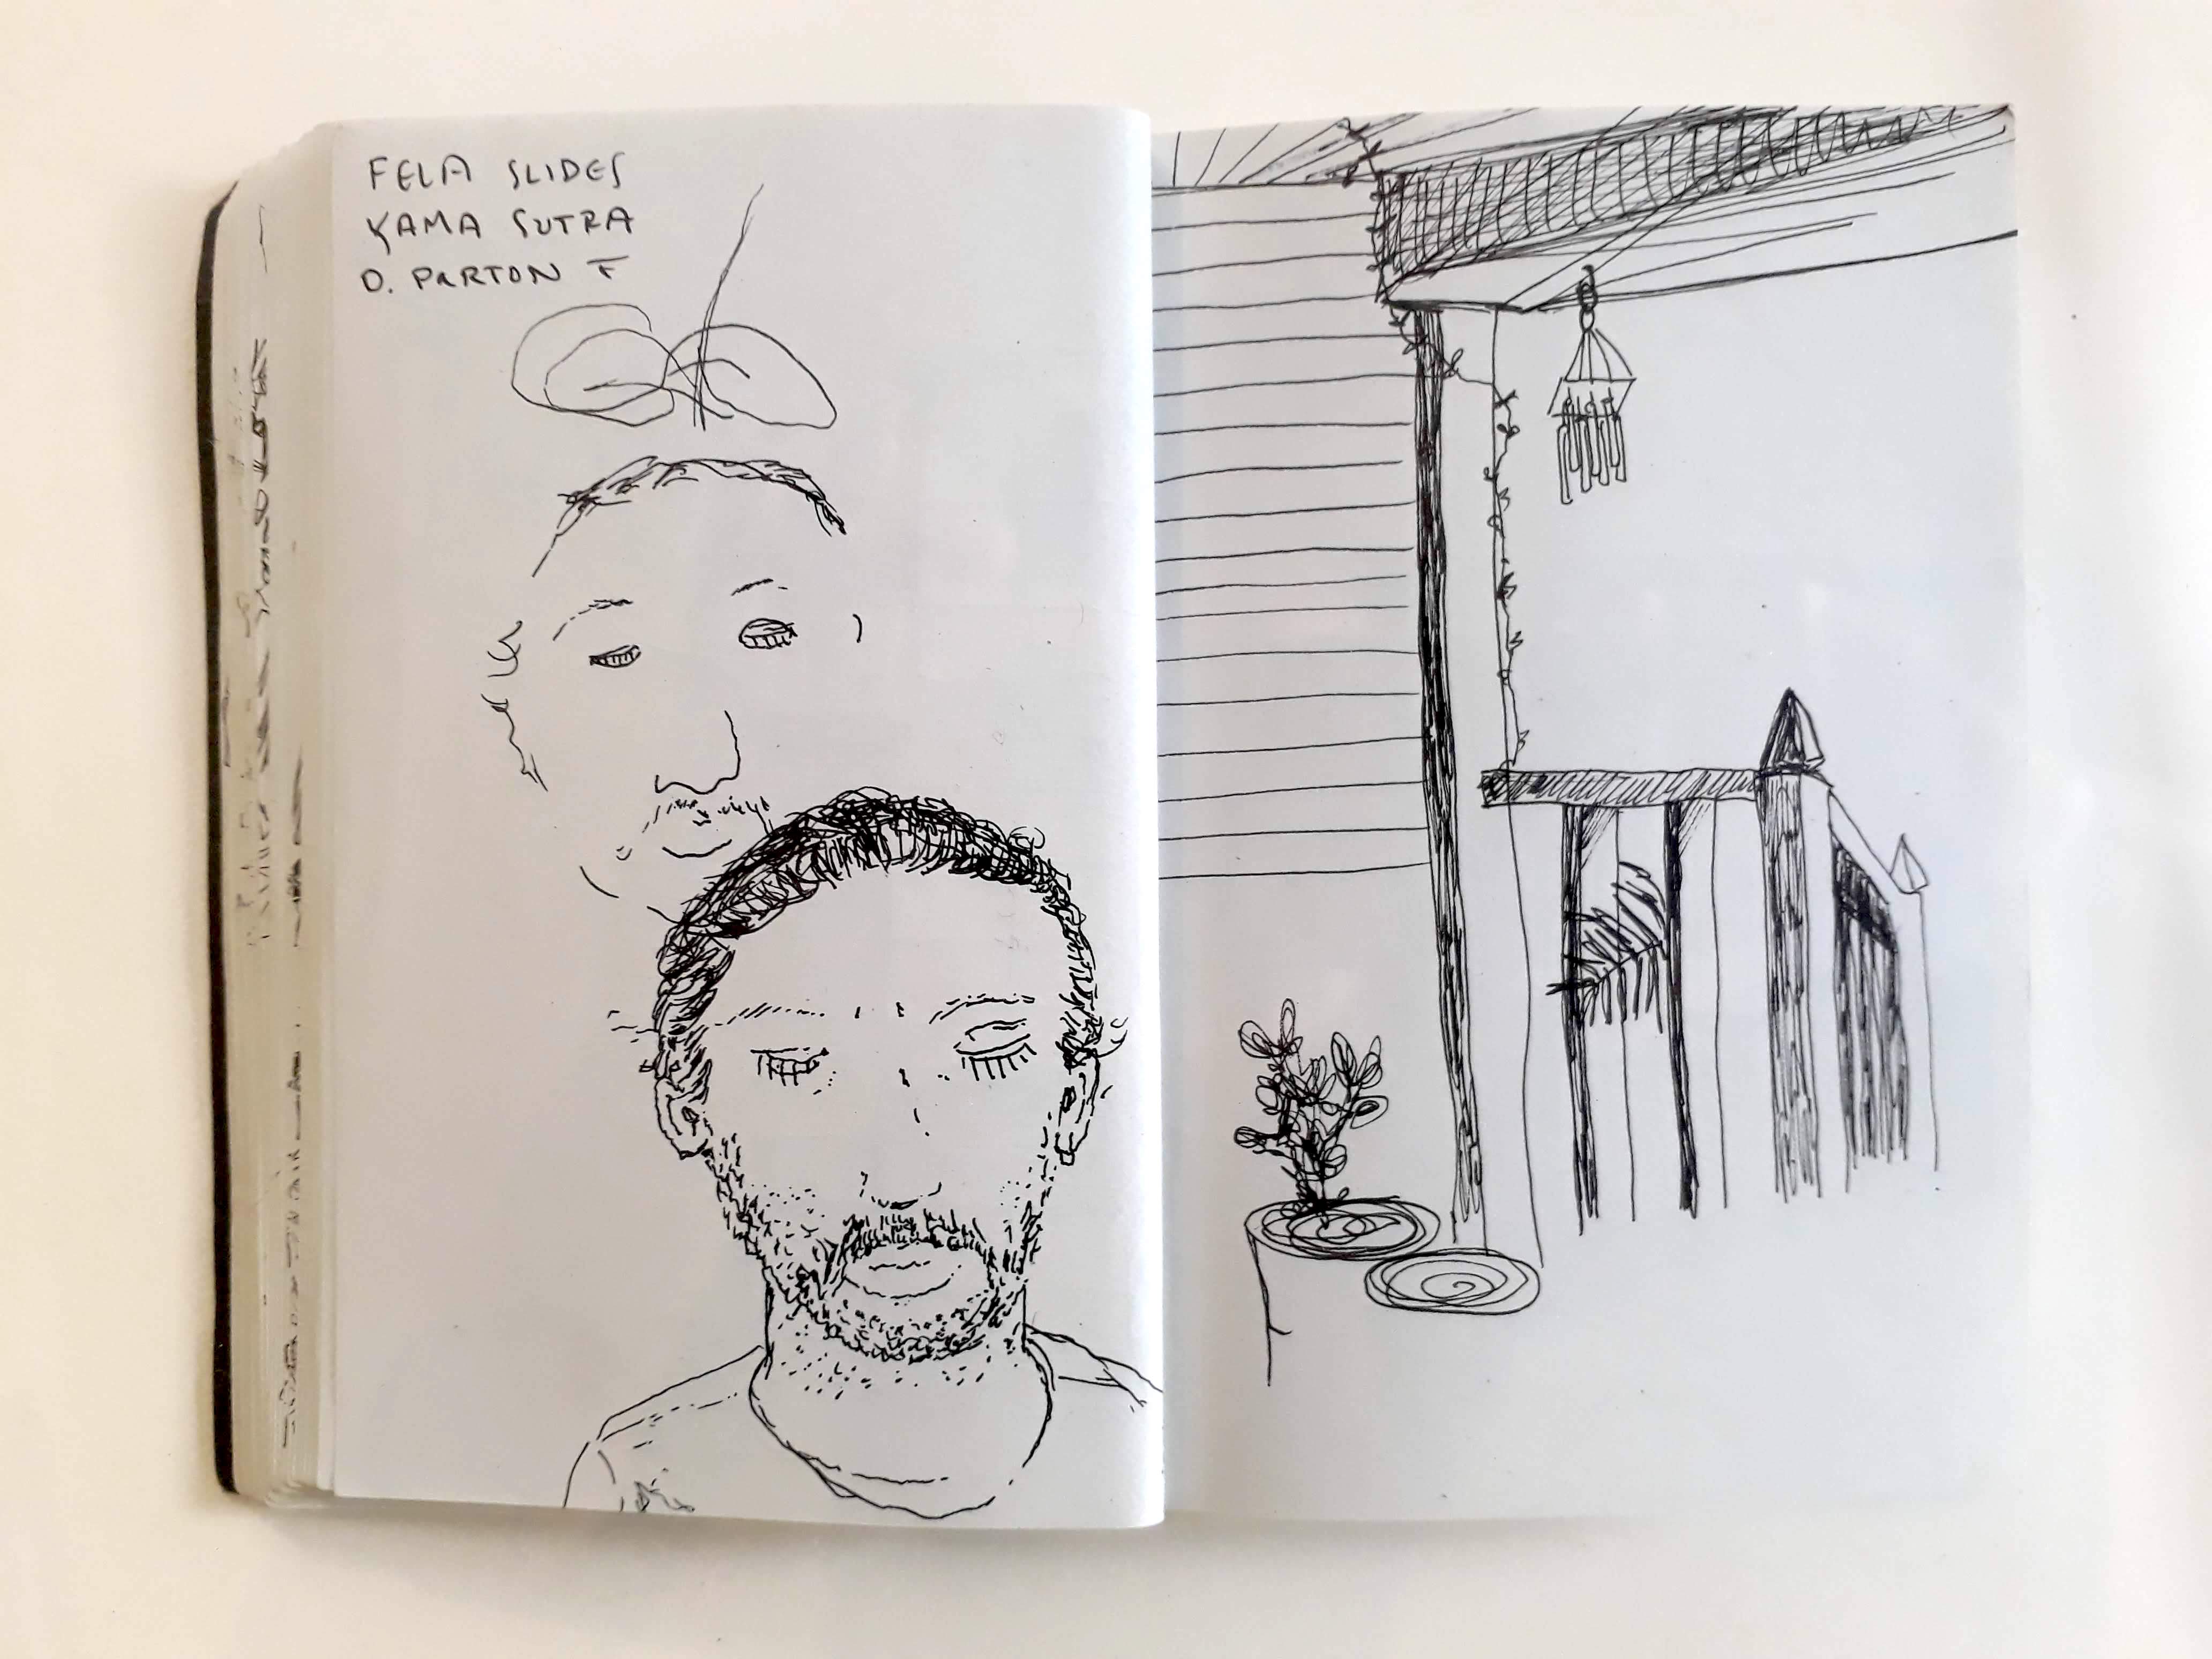 FELA SLIDES
KAMA SUTRA
D. PARTON F